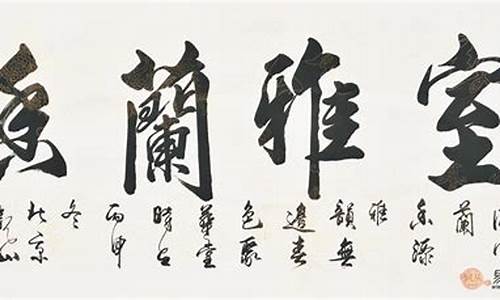 室雅蘭香
蘭
香添
雅
韻無
邊春
色聚
華堂
時在
丙申
冬
北京